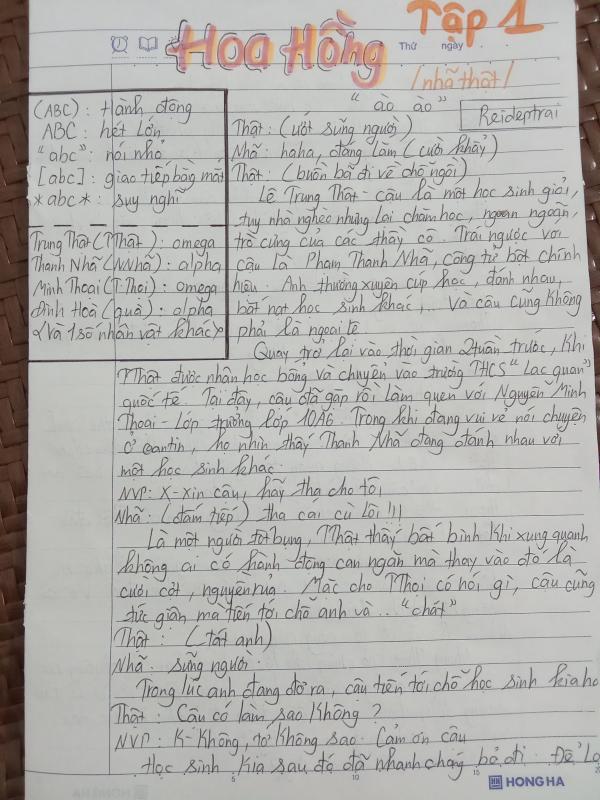 Hoa Hồng
Tập 1
Thứ ngày
/nhã thật/
(ABC): hành động
ABC: hét lớn
"abc": nói nhỏ
[abc]: giao tiếp bằng mắt
*abc*: suy nghĩ
Trung Thật (TThật): omega
Thanh Nhã (NNhã): alpha
Minh Thoại (T.Thoại): omega
Đình Hoà (quà): alpha
<Và 1 số nhân vật khác>
"ào ào"
Reideptrai
Thật: (ướt sũng người)
Nhã: haha, đáng lắm (cười khẩy)
Thật: (buồn bã đi về chỗ ngồi)
Lê Trung Thật - cậu là một học sinh giỏi,
tuy nhà nghèo nhưng lại chăm học, ngoan ngoãn,
trò cưng của các thầy cô. Trái ngược với
cậu là Phạm Thanh Nhã, công tử bột chính
hiệu. Anh thường xuyên cúp học, đánh nhau,
bắt nạt học sinh khác,... Và cậu cũng không
phải là ngoại lệ
Quay trở lại vào thời gian 2 tuần trước, khi
TThật được nhận học bổng và chuyên vào trường THCS "Lạc quan"
quốc tế. Tại đây, cậu đã gặp rồi làm quen với Nguyễn Minh
Thoại - Lớp trưởng lớp 10A6. Trong khi đang vui vẻ nói chuyện
ở cantin, họ nhìn thấy Thanh Nhã đang đánh nhau với
một học sinh khác.
NVP: X-xin cậu, hãy tha cho tôi
Nhã: (đấm tiếp) tha cái củ lôi!!!
Là một người tốt bụng, TThật thấy bất bình khi xung quanh
không ai có hành động can ngăn mà thay vào đó là
cười cợt, nguyền rủa. Mặc cho TThoại có nói gì, cậu cũng
tức giận mà tiến tới chỗ anh và.. "chát"
Thật: (tát anh)
Nhã: sững người.
Trong lúc anh đang đơ ra, cậu tiến tới chỗ học sinh kia
Thật: Cậu có làm sao không?
NVP: K-Không, tớ không sao. Cảm ơn cậu
Học sinh kia sau đó đã nhanh chóng bỏ đi. Để
5 10 15
HONG HA